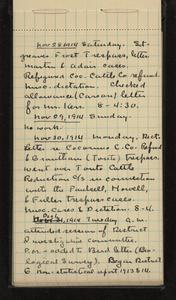 Nov 28 1914 Saturday. Set-
greaves Forest Trespass, letter
Martin & Adair cases.
Refigured Coc. Cattle Co refund.
Misc. dictation. Checked
allowance (Carson) letter
for Mr. Kerr. 8 - 4:30.
Nov 29, 1914 Sunday
No work.
Nov 30, 1914 Monday. Dict.
Letter re Coconino C. Co. Refund
& Brantham (Tonto) trespass.
Went over Tonto Cattle
Reduction C/s in connection
with the Pantsell, Howell,
& Fuller trespass cases.
Misc. Cases & Dictation. 8-4.
Dec 1, 1914 Tuesday A.M.
attended session of District
Investigative Committee.
P.M. - called to Bird letter (Bio-
logical Survey). Began District
G. Mon. statistical report 1913 & 14.